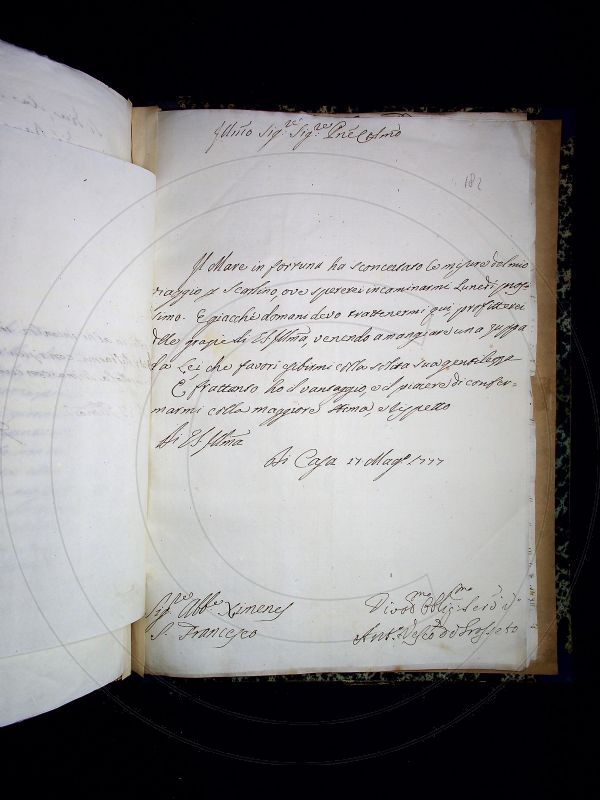 Illmo Sig.re Sig.re Pne Colmo
182
Il Mare in fortuna ha sconcertato le misure del mio
viaggio p Scarlino, ove spererei incaminarmi Lunedì pros
simo. E giacchè domani devo trattenermi qui profitterei
delle grazie di VS Illma venendo a mangiare una zuppa
da Lei che favorì esibirmi colla solita sua gentilezza
E frattanto ho il vantaggio, e il piacere di confer-
marmi colla maggiore stima, e rispetto
Di VS Illma
Di Casa 17 Mago 1777
Sig.re Abb.e Ximenes
S. Francesco
Divo.mo Obblig.mo Serv.e
Ant.o Vesco di Grosseto